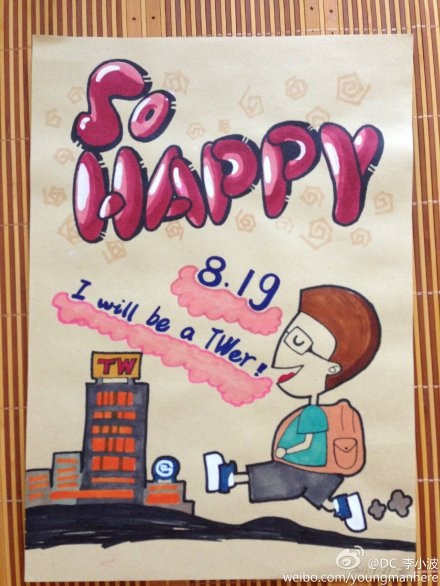 So
HAPPY
8.19
I will be a TWer!
TW
@DC_李小波
weibo.com/youngmanhere